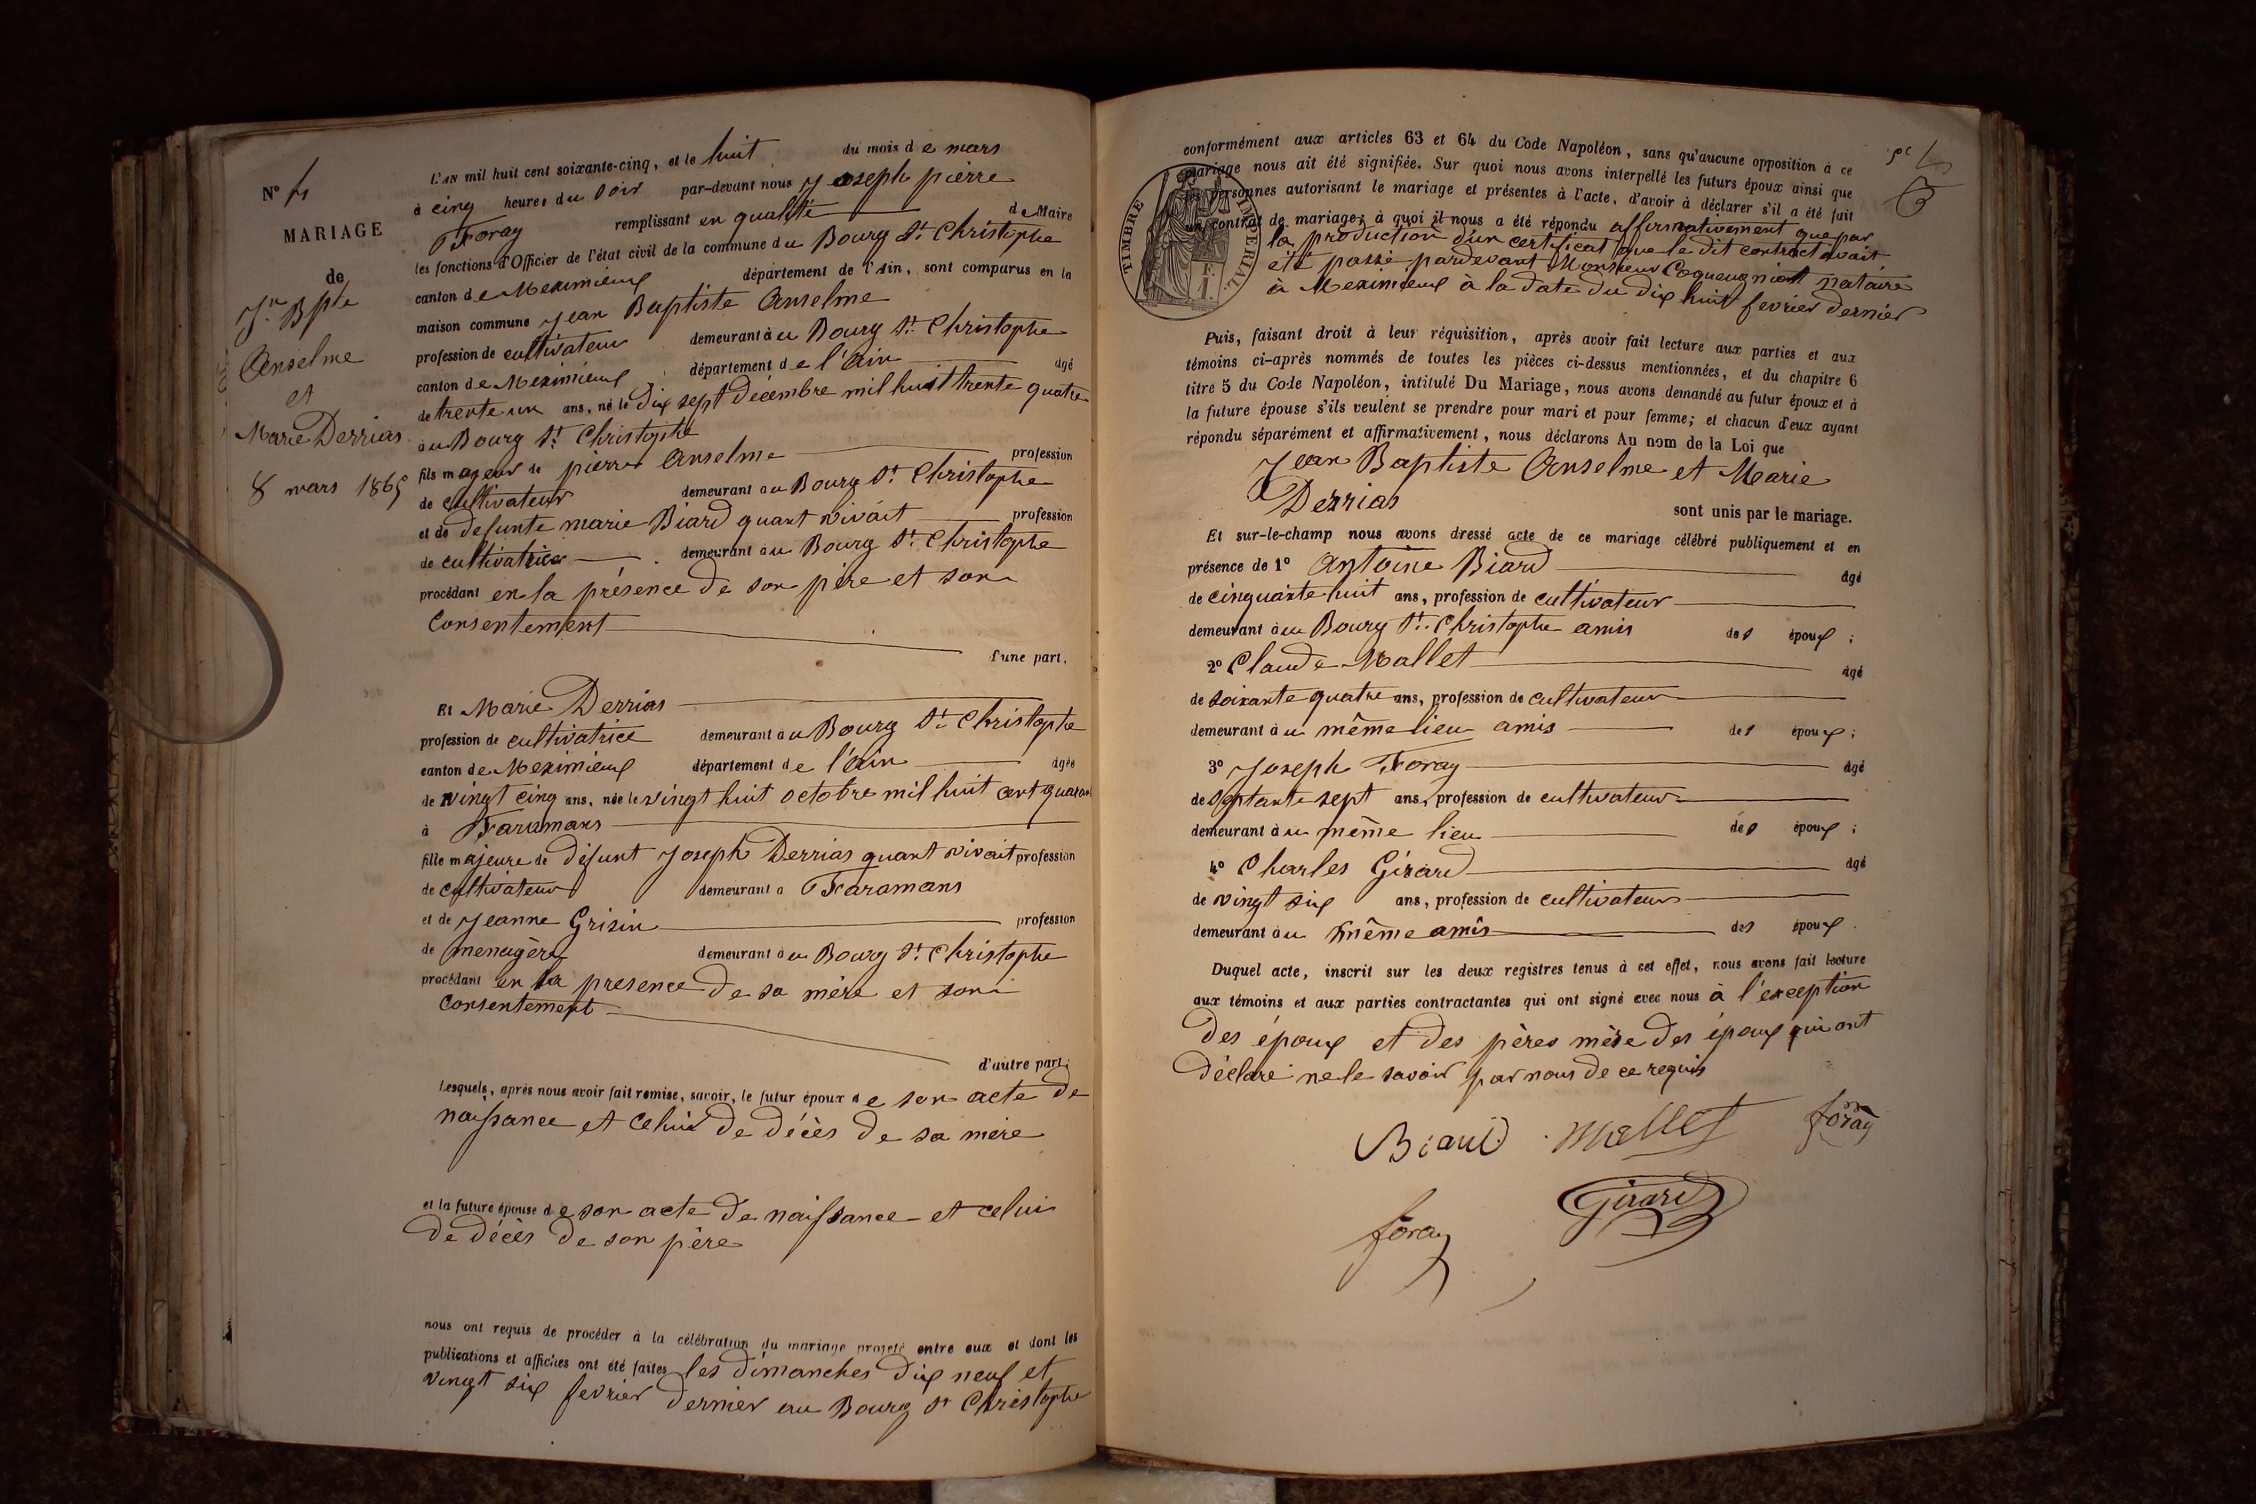 N° 4
MARIAGE
de
Jn Bpte
Anselme
et
Marie Derrias
8 mars 1865
L'AN mil huit cent soixante-cinq, et le huit du mois de mars
à cinq heures du soir par-devant nous Joseph pierre
Foray remplissant en qualité de Maire
les fonctions d'Officier de l'état civil de la commune du Bourg St Christophe
canton de Meximieux département de l'Ain, sont comparus en la
maison commune Jean Baptiste Anselme
profession de cultivateur demeurant à u Bourg St Christophe
canton de Meximieux département de l'Ain âgé
de trente un ans, né le dix sept décembre mil huit trente quatre
à u Bourg St Christophe
fils mageur de pierre Anselme profession
de cultivateur demeurant au Bourg St Christophe
et de defunte marie Biard quant vivait profession
de cultivatrice demeurant au Bourg St Christophe
procédant en la présence de son père et son
Consentement
d'une part.
Et Marie Derrias
profession de cultivatrice demeurant à u Bourg St Christophe
canton de Meximieux département de l'Ain âgée
de vingt cinq ans, née le vingt huit octobre mil huit cent quaran
à Faramans
fille majeure de défunt Joseph Derrias quant vivait profession
de cultivateur demeurant à Faramans
et de Jeanne Grisin profession
de menagère demeurant à u Bourg St Christophe
procédant en la presence de sa mère et son
consentement
d'autre part;
Lesquels, après nous avoir fait remise, savoir, le futur époux de son acte de
naissance et celui de décès de sa mère
et la future épouse de son acte de naissance et celui
de décès de son père
nous ont requis de procéder à la célébration du mariage projeté entre eux et dont les
publications et affiches ont été faites les dimanches dix neuf et
vingt six fevrier dernier au Bourg St Christophe
conformément aux articles 63 et 64 du Code Napoléon, sans qu'aucune opposition à ce
mariage nous ait été signifiée. Sur quoi nous avons interpellé les futurs époux ainsi que
personnes autorisant le mariage et présentes à l'acte, d'avoir à déclarer s'il a été fait
un contrat de mariage; à quoi il nous a été répondu affirmativement que par
la production d'un certificat que le dit contract avait
été passé pardevant Monsieur Coqueugniot notaire
à Meximieux à la date du dix huit fevrier dernier
TIMBRE IMPERIAL
Puis, faisant droit à leur réquisition, après avoir fait lecture aux parties et aux
témoins ci-après nommés de toutes les pièces ci-dessus mentionnées, et du chapitre 6
titre 5 du Code Napoléon, intitulé Du Mariage, nous avons demandé au futur époux et à
la future épouse s'ils veulent se prendre pour mari et pour femme; et chacun d'eux ayant
répondu séparément et affirmativement, nous déclarons Au nom de la Loi que
Jean Baptiste Anselme et Marie
Derrias sont unis par le mariage.
Et sur-le-champ nous avons dressé acte de ce mariage célébré publiquement et en
présence de 1° Antoine Biard âgé
de cinquante huit ans, profession de cultivateur
demeurant à u Bourg St Christophe amis des époux;
2° Claude Mallet âgé
de soixante quatre ans, profession de cultivateur
demeurant à u même lieu amis des époux;
3° Joseph Foray âgé
de septante sept ans, profession de cultivateur
demeurant à u même lieu des époux;
4° Charles Girard âgé
de vingt six ans, profession de cultivateur
demeurant à u même amis des époux.
Duquel acte, inscrit sur les deux registres tenus à cet effet, nous avons fait lecture
aux témoins et aux parties contractantes qui ont signé avec nous à l'exception
des époux et des pères mère des époux qui ont
déclaré ne le savoir par nous de ce requis
Biard Mallet foray
foray Girard